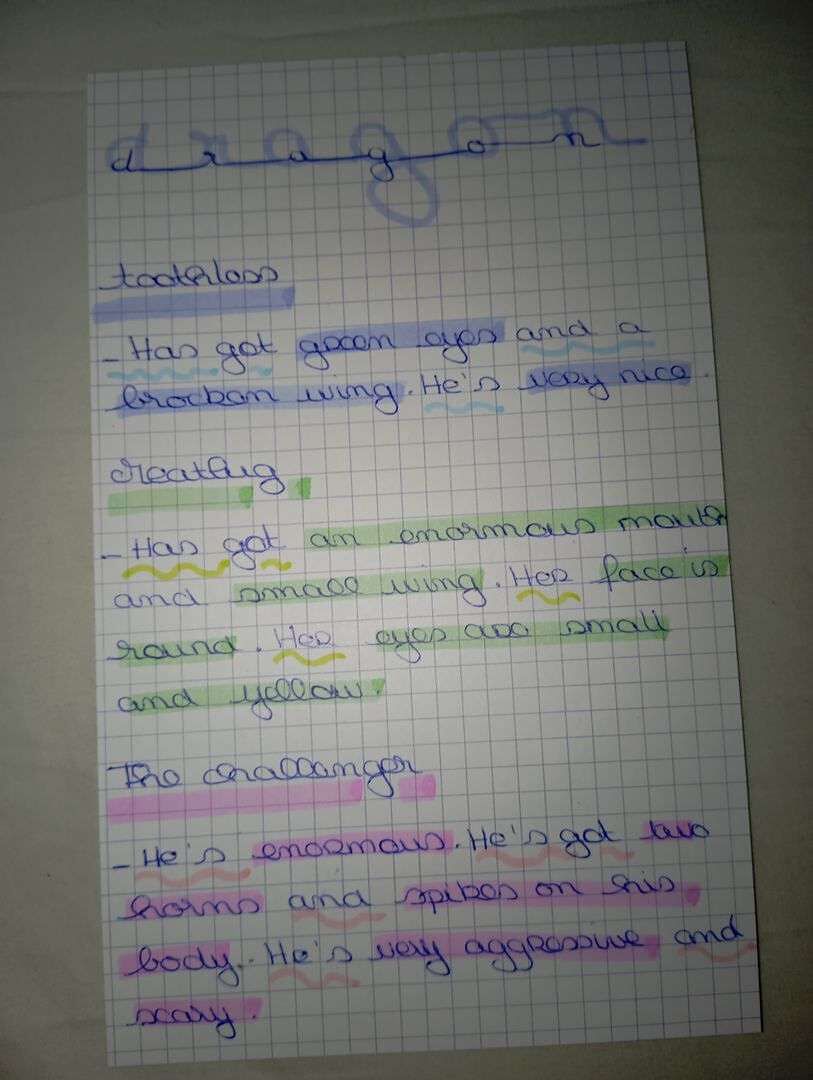 dragon
tootherless
- Has got green eyes and a
brocken wing. He's very nice.
- Has got an enormous mouth
and small wing. Her face is
round. Her eyes are small
and yellow.
The challanger
- He's enormous. He's got two
horns and spikes on his
body. He's very aggressive and
scary.